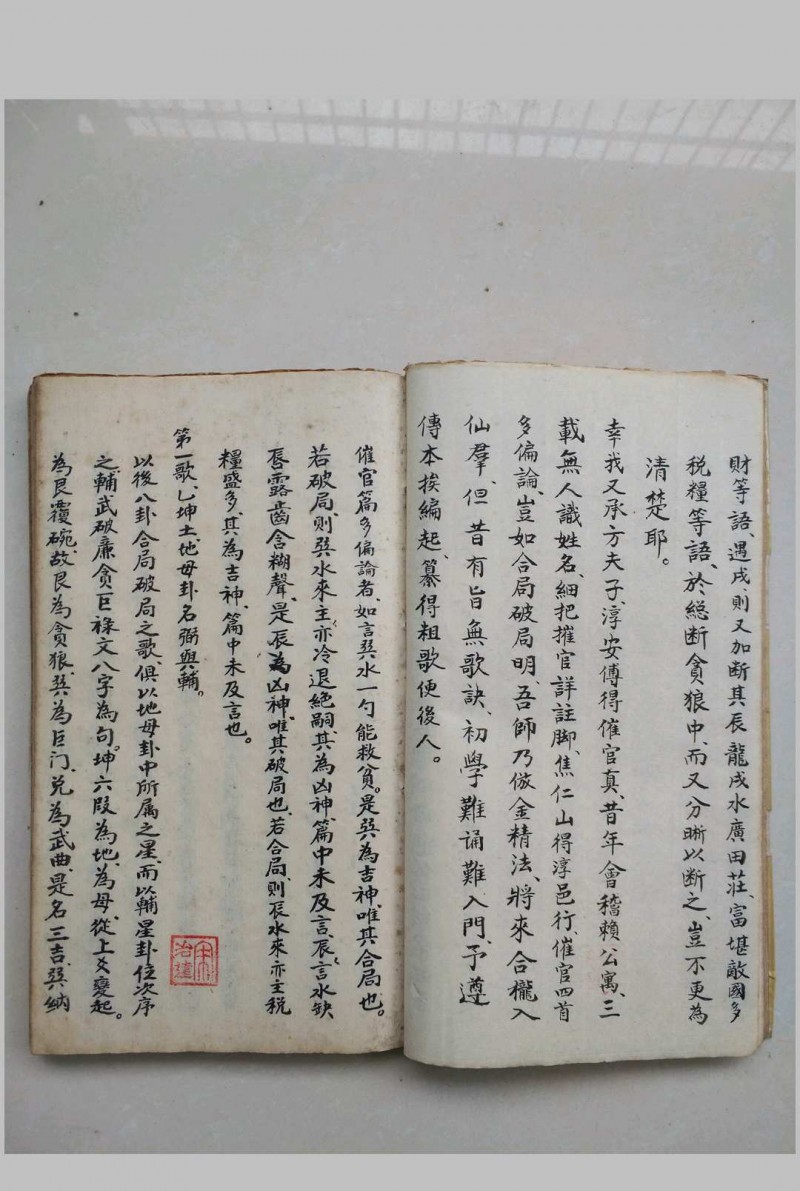 財等語、遇戌、則又加断其辰龍戌水廣田莊、富堪敵國多
税糧等語、於総断貪狼中、而又分晰以断之、豈不更為
清楚耶。
幸我又承方夫子、淳安傳得催官真、昔年會稽賴公寓、三
載無人識姓名、細把摧官詳註脚、焦仁山得淳邑行、催官四首
多偏論、豈如合局破局明、吾師乃倣金精法、將來合櫳入
仙羣、但昔有旨無歌訣、初學難誦難入門、予遵
傳本挨編起、纂得粗歌便後人。
催官篇多偏論者、如言巽水一勺能救貧。是巽為吉神、唯其合局也。
若破局、則巽水來主、亦冷退絕嗣、其為凶神、篇中未及言、辰言水缺
唇露齒含糊聲、是辰為凶神、唯其破局也、若合局、則辰水來亦主税
糧盛多、其為吉神、篇中未及言也。
第一歌、乙坤土、地母卦名弼與輔。
以後八卦合局破局之歌、俱以地母卦中所属之星、而以輔星卦位次序
之、輔武破廉貪巨祿文八字為句。坤六段為地、為母、從上爻變起。
為艮覆碗、故艮為貪狼、巽為巨门、兌為武曲、是名三吉、巽納
治建